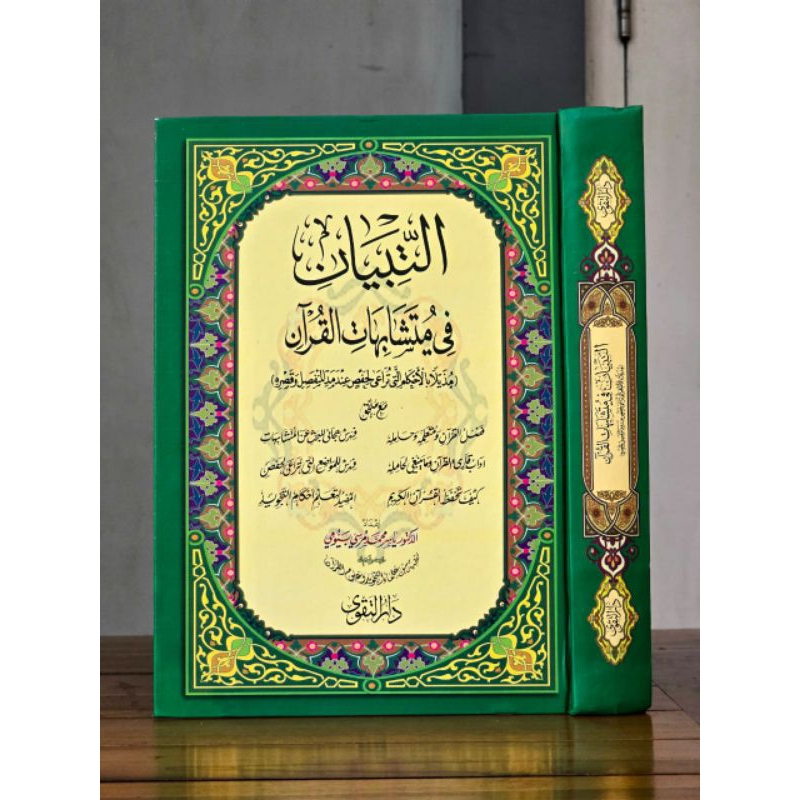 التِّبيَان
فِي مُتَشَابِهَاتِ القُرْآن
(مُذَيَّلًا بِالأَحْكَامِ الَّتِي تُرَاعَى لِحَفْصٍ عِنْدَ مَدِّ المُنْفَصِلِ وَقَصْرِهِ)
مع ملحق
فضل القرآن ومتعلمه وحامله
فهرس هجائي للبحث عن المتشابهات
آداب قارئ القرآن وما ينبغي لحامله
فهرس للمواضع التي تراعى لحفص
كيف تحفظ القرآن الكريم
المفيد لتعليم أحكام التجويد
إعداد
الدكتور ياسر محمد مرسي بيومي
دار التقوى
دار التقوى
التبيان في متشابهات القرآن
دار التقوى